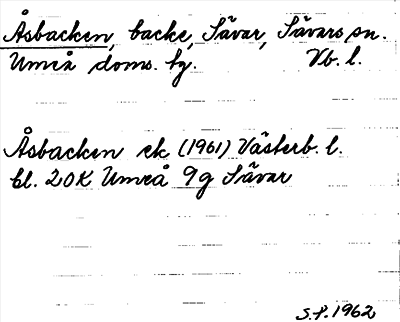 Åsbacken, backe, Sävar, Sävars sn.
Umeå doms. tg. Vb. l.
Åsbacken ek (1961) Västerb. l.
bl. 20K Umeå 9g Sävar
S.P. 1962